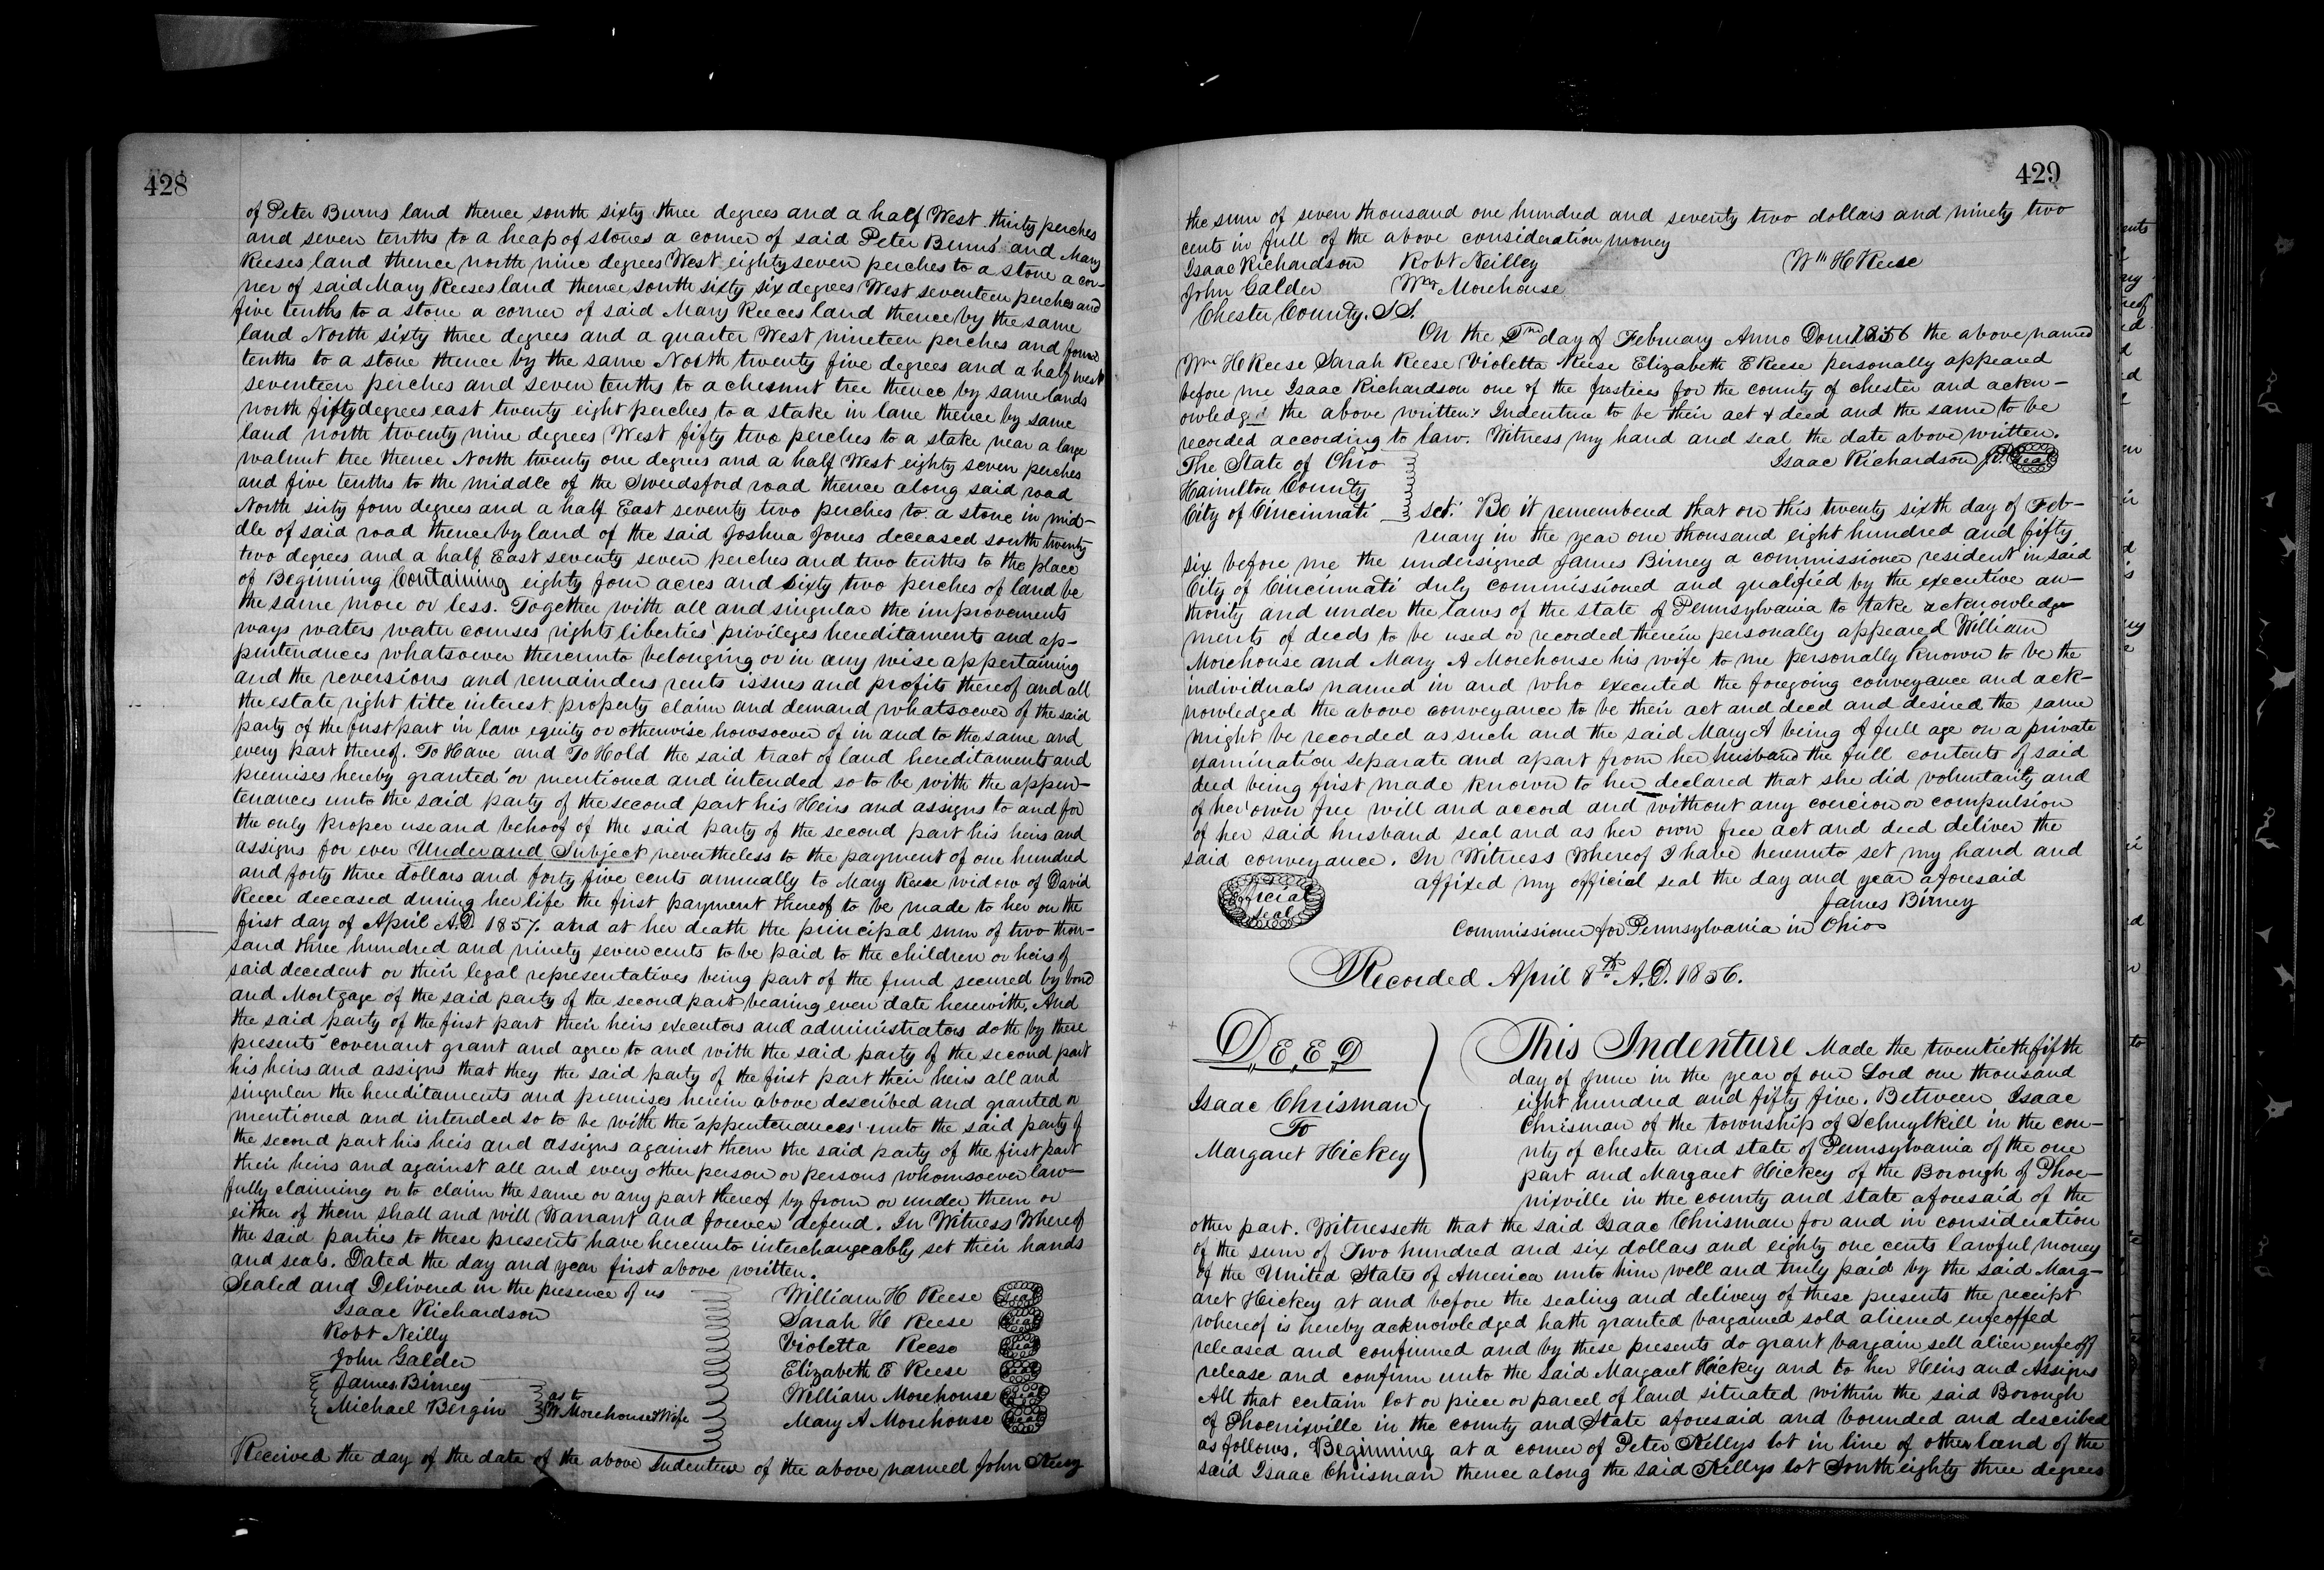 428
of Peter Burns land thence south sixty three degrees and a half West thirty perches
and seven tenths to a heap of stones a corner of said Peter Burns' and Mary
Reeses land thence north nine degrees West eighty seven perches to a stone a cor-
ner of said Mary Reeses land thence south sixty six degrees West seventeen perches and
five tenths to a stone a corner of said Mary Reeces land thence by the same
land North sixty three degrees and a quarter West nineteen perches and four
tenths to a stone thence by the same North twenty five degrees and a half west
seventeen perches and seven tenths to a chesnut tree thence by same lands
north fifty degrees east twenty eight perches to a stake in lane thence by same
land north twenty nine degrees West fifty two perches to a stake near a large
walnut tree thence North twenty one degrees and a half West eighty seven perches
and five tenths to the middle of the Sweedsford road thence along said road
North sixty four degrees and a half East seventy two perches to a stone in mid-
dle of said road thence by land of the said Joshua Jones deceased south twenty
two degrees and a half East seventy seven perches and two tenths to the place
of Beginning Containing eighty four acres and sixty two perches of land be
the same more or less. Together with all and singular the improvements
ways waters water courses rights liberties privileges hereditaments and ap-
purtenances whatsoever thereunto belonging or in any wise appertaining
and the reversions and remainders rents issues and profits thereof and all
the estate right title interest property claim and demand whatsoever of the said
party of the first part in law equity or otherwise howsoever of in and to the same and
every part thereof. To Have and To Hold the said tract of land hereditaments and
premises hereby granted or mentioned and intended so to be with the appur-
tenances unto the said party of the second part his Heirs and assigns to and for
the only proper use and behoof of the said party of the second part his heirs and
assigns for ever Under and Subject nevertheless to the payment of one hundred
and forty three dollars and forty five cents annually to Mary Reese widow of David
Reece deceased during her life the first payment thereof to be made to her on the
first day of April A.D. 1857. and at her death the principal sum of two thou-
sand three hundred and ninety seven cents to be paid to the children or heirs of
said decedent or their legal representatives being part of the fund secured by bond
and Mortgage of the said party of the second part bearing even date herewith. And
the said party of the first part their heirs executors and administrators doth by these
presents covenant grant and agree to and with the said party of the second part
his heirs and assigns that they the said party of the first part their heirs all and
singular the hereditaments and premises herein above described and granted or
mentioned and intended so to be with the appurtenances unto the said party of
the second part his heis and assigns against them the said party of the first part
their heirs and against all and every other person or persons whomsoever law-
fully claiming or to claim the same or any part thereof by from or under them or
either of them shall and will Warrant and forever defend. In Witness Whereof
the said parties to these presents have hereunto interchangeably set their hands
and seals. Dated the day and year first above written.
Sealed and Delivered in the presence of us
Isaac Richardson
Robt Neilly
John Galder
James Birney
Michael Bergin
as to
W. Morehouse & Wife
William H Reese seal
Sarah H Reese seal
Violetta Reese seal
Elizabeth E Reese seal
William Morehouse seal
Mary A Morehouse seal
Received the day of the date of the above Indenture of the above named John
429
the sum of seven thousand one hundred and seventy two dollars and ninety two
cents in full of the above consideration money
Isaac Richardson Robt Neilley Wm H Reese
John Galder Wm Morehouse
Chester County. SS.
On the 2nd day of February Anno Dom 1856 the above named
Wm H Reese Sarah Reese Violetta Reese Elizabeth E Reese personally appeared
before me Isaac Richardson one of the Justices for the county of chester and ackn-
owledged the above written Indenture to be their act & deed and the same to be
recorded according to law. Witness my hand and seal the date above written.
Isaac Richardson J.P. seal
The State of Ohio
Hamilton County
City of Cincinnati sct. Be it remembered that on this twenty sixth day of Feb-
ruary in the year one thousand eight hundred and fifty
six before me the undersigned James Birney a commissioner resident in said
City of Cincinnati duly commissioned and qualified by the executive au-
thority and under the laws of the state of Pennsylvania to take acknowledge
ments of deeds to be used or recorded therein personally appeared William
Morehouse and Mary A Morehouse his wife to me personally known to be the
individuals named in and who executed the foregoing conveyance and ack-
nowledged the above conveyance to be their act and deed and desired the same
might be recorded as such and the said Mary A being of full age on a private
examination separate and apart from her husband the full contents of said
deed being first made known to her declared that she did voluntarily and
of her own free will and accord and without any coercion or compulsion
of her said husband seal and as her own free act and deed deliver the
said conveyance. In Witness Whereof I have hereunto set my hand and
affixed my official seal the day and year aforesaid
Official
seal
James Birney
Commissioner for Pennsylvania in Ohio
Recorded April 8th A.D. 1856.
DEED
Isaac Chrisman
To
Margaret Hickey
This Indenture Made the twentieth fifth
day of June in the year of our Lord one thousand
eight hundred and fifty five. Between Isaac
Chrisman of the township of Schuylkill in the cou-
nty of chester and state of Pennsylvania of the one
part and Margaret Hickey of the Borough of Phoe-
nixville in the county and state aforesaid of the
other part. Witnesseth that the said Isaac Chrisman for and in consideration
of the sum of Two hundred and six dollars and eighty one cents lawful money
of the United States of America unto him well and truly paid by the said Marg-
aret Hickey at and before the sealing and delivery of these presents the receipt
whereof is hereby acknowledged hath granted bargained sold aliened enfeoffed
released and confirmed and by these presents do grant bargain sell alien enfeoff
release and confirm unto the said Margaret Hickey and to her Heirs and Assigns
All that certain lot or piece or parcel of land situated within the said Borough
of Phoenixville in the county and State aforesaid and bounded and described
as follows. Beginning at a corner of Peter Kellys lot in line of other land of the
said Isaac Chrisman thence along the said Kellys lot South eighty three degrees